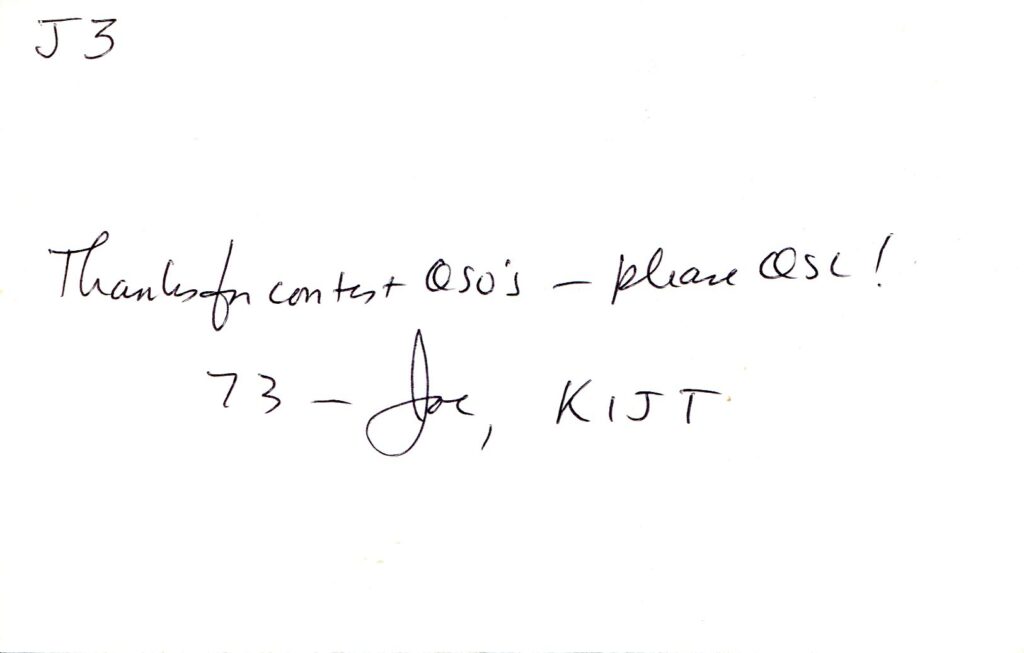 J3
Thanks for contest QSO's — please QSL!
73 — Joe, K1JT